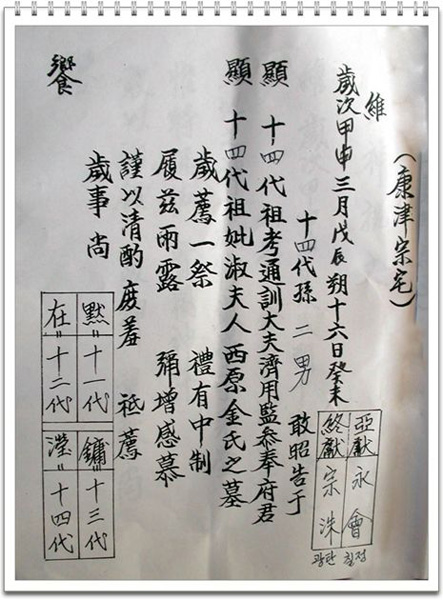 (康津宗宅)
維
歲次甲申三月戊辰朔十六日癸未
十四代孫 二男 敢昭告于
顯 十四代祖考通訓大夫濟用監參奉府君
顯 十四代祖妣淑夫人西原金氏之墓
歲薦一祭 禮有中制
履玆雨露 彌增感慕
謹以清酌 庶羞 祗薦
歲事尚
饗
亞獻 永會
終獻 宗洙
광탄 칠정
黙=十一代
在=十二代
鏞=十三代
瀅=十四代